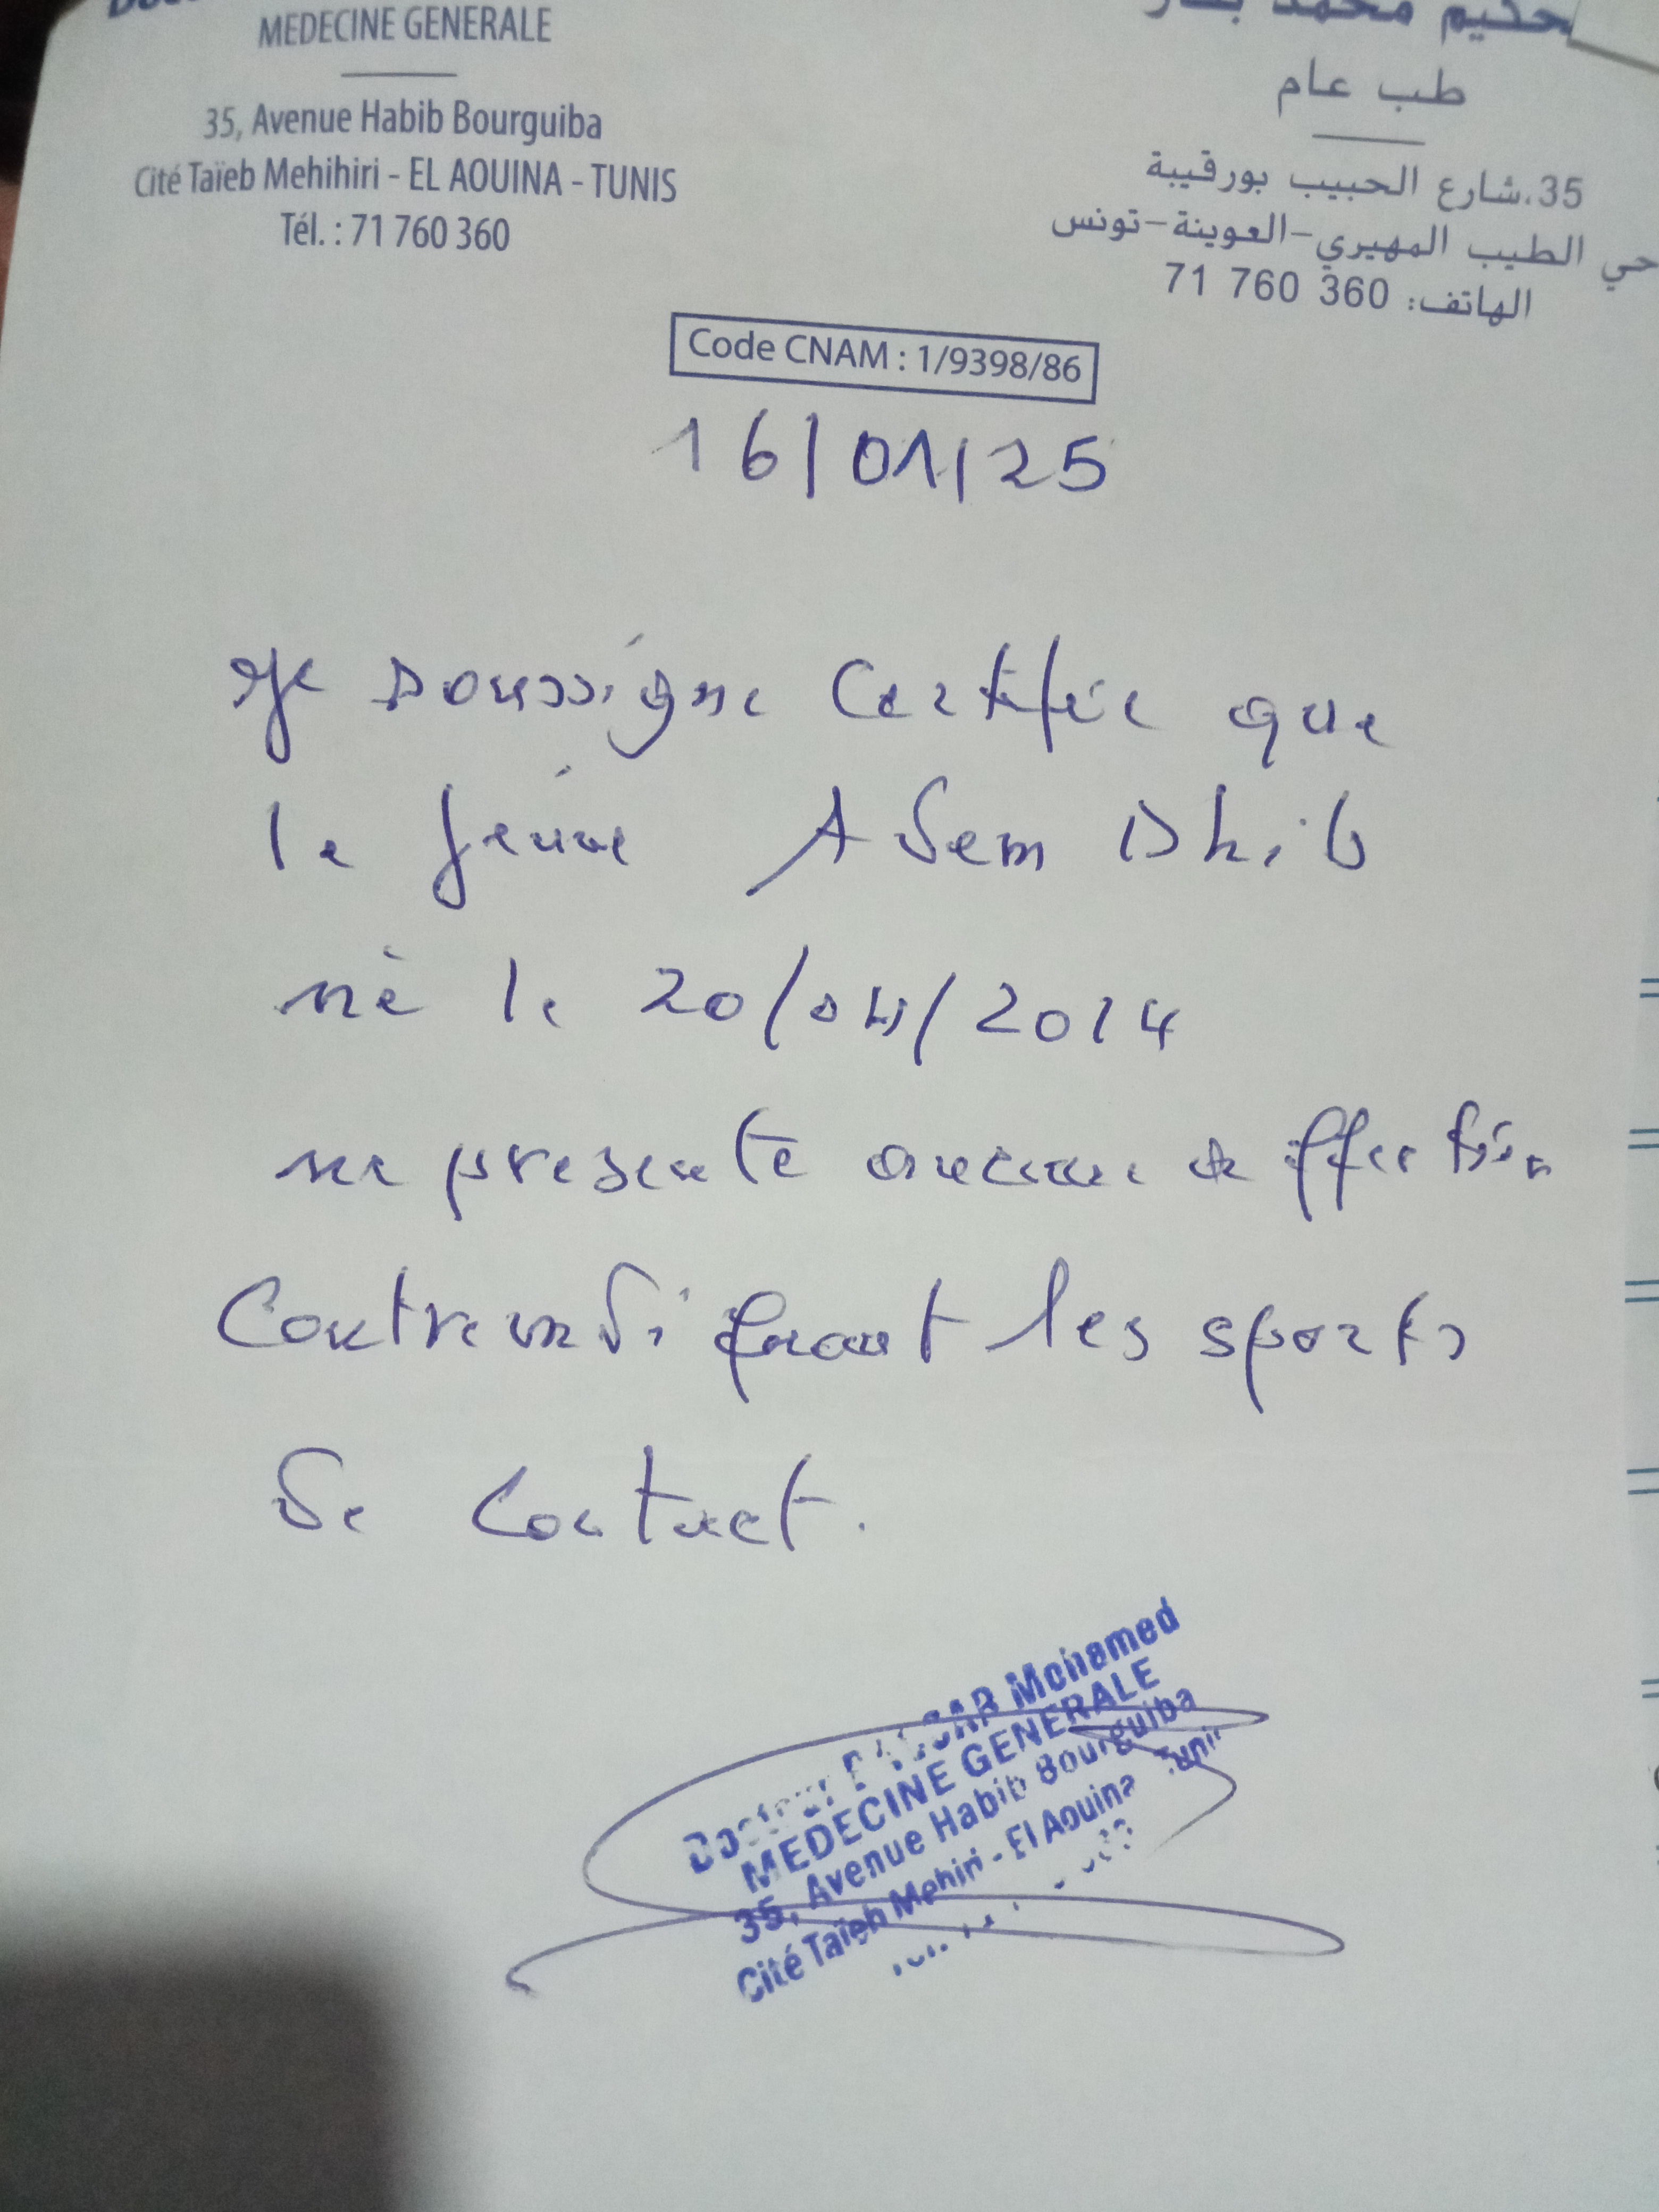 MEDECINE GENERALE
35, Avenue Habib Bourguiba
Cité Taïeb Mehihiri - EL AOUINA - TUNIS
Tél. : 71 760 360
حكيم محمد
طب عام
35.شارع الحبيب بورقيبة
حي الطيب المهيري-العوينة-تونس
الهاتف: 360 760 71
Code CNAM : 1/9398/86
16/01/25
Je soussigné certifie que
le jeune Adem Dhib
né le 20/04/2014
ne presente aucune affection
contrendiquant les sports
de contact.
Docteur Mohamed
MEDECINE GENERALE
35, Avenue Habib Bourguiba
Cité Taïeb Mehiri - El Aouina Tunis